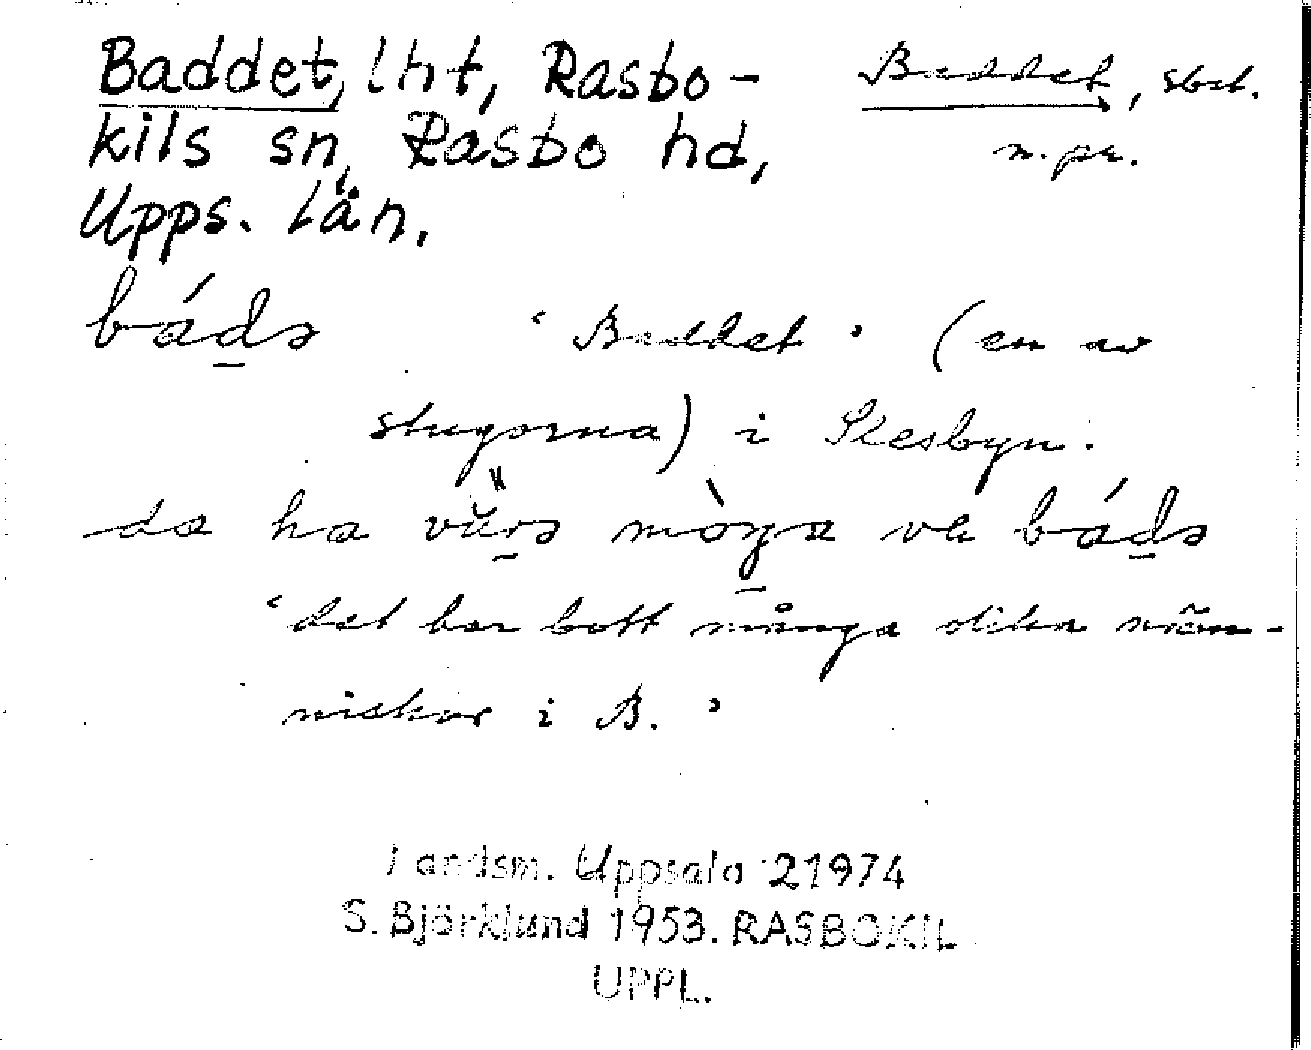 Baddet, lht, Rasbo-
kils sn, Rasbo hd,
Upps. län.
Baddet, sbst.
n. pr.
bádə
'Baddet' (en av
stugorna) i Skesbyn.
də ha vùrə mòŋa va bádə
'det har bott många olika män-
niskor i B.'
Landsm. Uppsala 21974
S. Björklund 1953. RASBOKIL
UPPL.